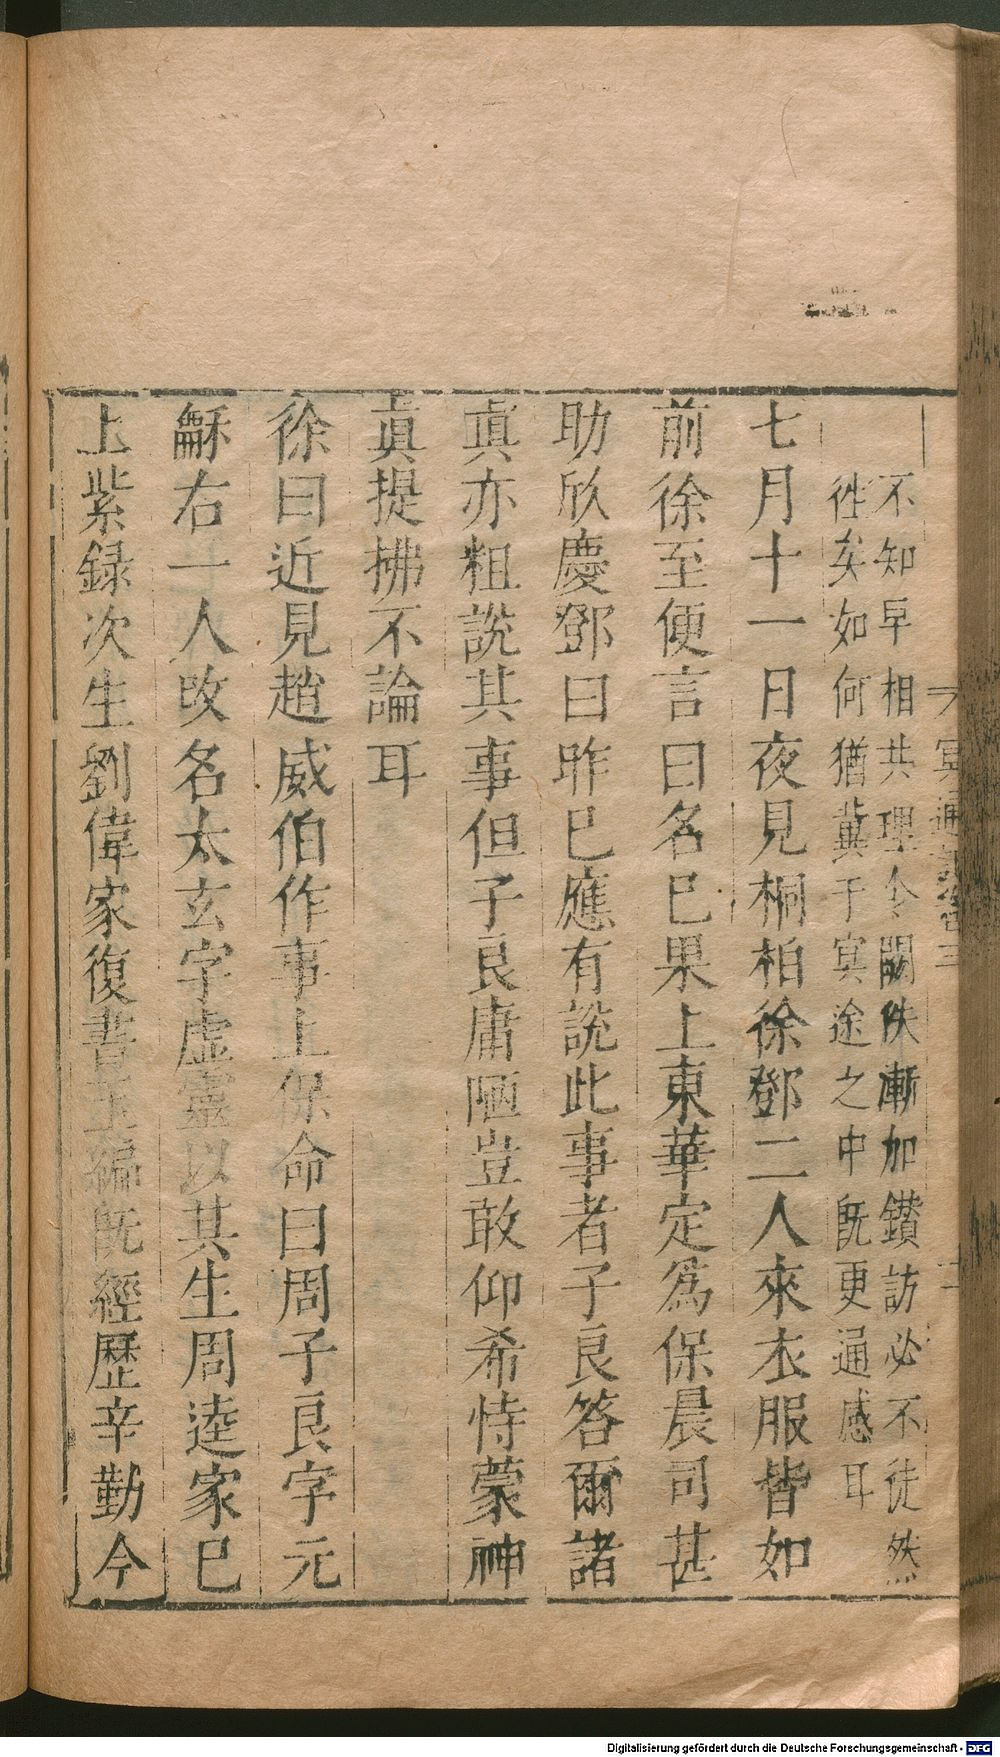 不知早相共理今闕佚漸加鑚訪必不徒然
徃矣如何猶冀于冥途之中旣更通感耳
七月十一日夜見桐柏徐鄧二人來衣服皆如
前徐至便言曰名已果上東華定爲保晨司甚
助欣慶鄧曰昨已應有説此事者子良答爾諸
眞亦粗説其事但子良庸陋豈敢仰希恃蒙神
眞提拂不論耳
徐曰近見趙威伯作事上保命曰周子良字元
龢右一人改名太玄字虚靈以其生周逵家已
上紫録次生劉偉家復書玉編旣經歴辛勤今
冥通
三
Digitalisierung gefördert durch die Deutsche Forschungsgemeinschaft - DFG